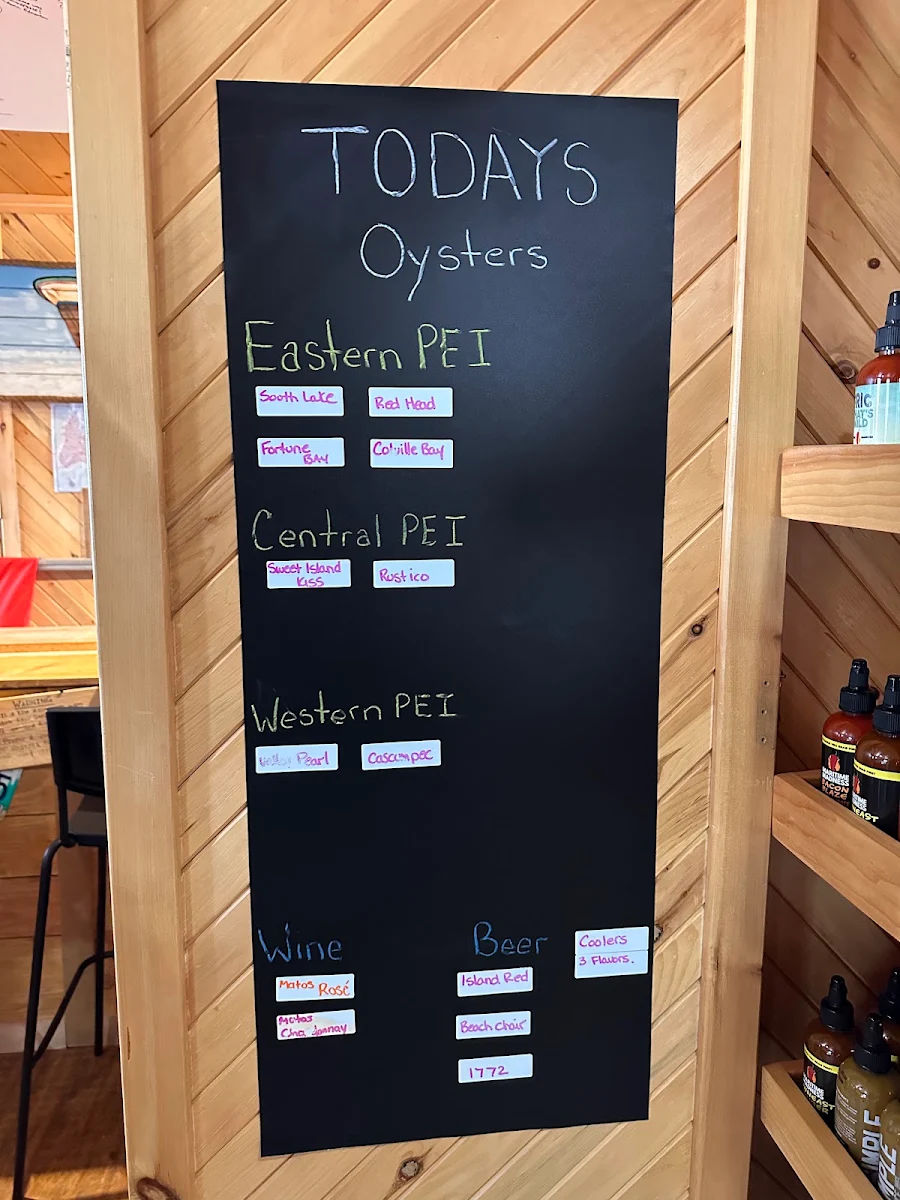 TODAYS
Oysters
Eastern PEI
South Lake
Red Head
Fortune
BAY
Colville Bay
Central PEI
Sweet Island
Kiss
Rustico
Western PEI
Pearl
Cascumpec
Wine
Matos Rosé
Matos
Cha donnay
Beer
Island Red
Beach Chair
1772
Coolers
3 Flavors.
BACON
BLAZE